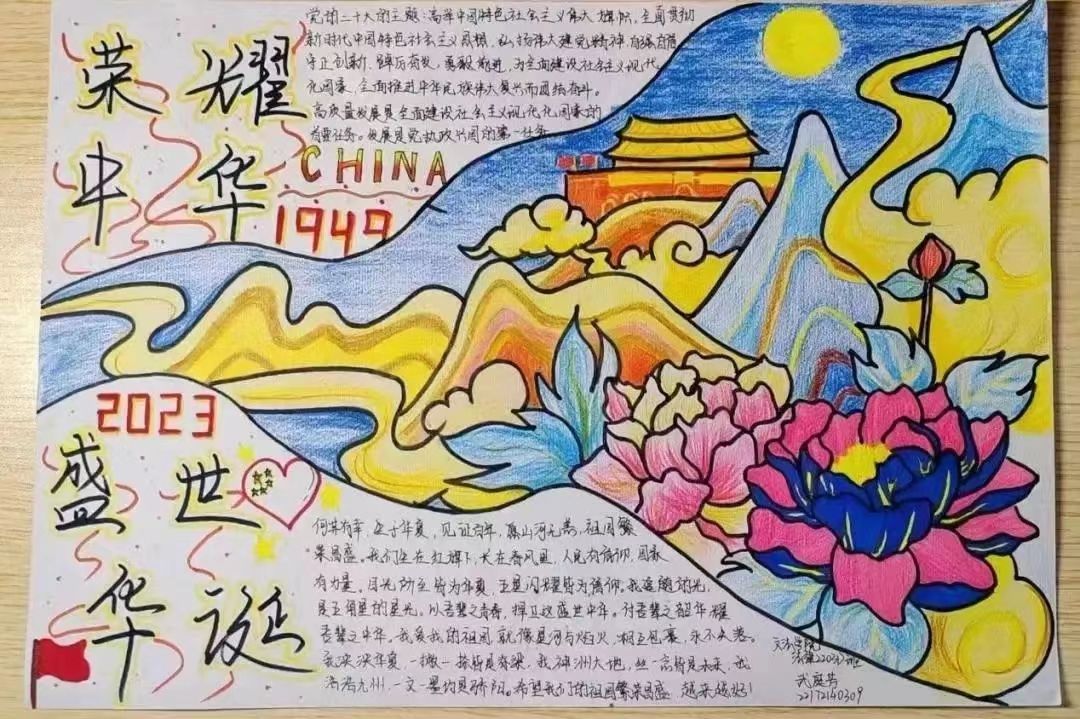 荣耀
中华
党的二十大的主题：高举中国特色社会主义伟大旗帜，全面贯彻
新时代中国特色社会主义思想，弘扬伟大建党精神，自信自强
守正创新，踔厉奋发，勇毅前进，为全面建设社会主义现代
化国家、全面推进中华民族伟大复兴而团结奋斗。
高质量发展是全面建设社会主义现代化国家的
首要任务。发展是党执政兴国的第一任务
CHINA
1949
2023
盛世
华诞
何其有幸，生于华夏，见证百年，愿山河无恙，祖国繁
荣昌盛。我们生在红旗下，长在春风里，人民有信仰，国家
有力量。目光所至皆为华夏，五星闪耀皆为信仰。我
是五角星的星光。以吾辈之青春，捍卫这盛世中华。付吾辈之韶华耀
吾辈之中华。我爱我的祖国就像星河与焰火，相互包裹，永不失落。
我泱泱华夏，一撇一捺皆是脊梁，我神州大地，丝一 皆是未来，我
浩浩九州，一文一墨均是骄阳。希望我们的祖国繁荣昌盛，越来越好！
文法学院
法律2203班
武庭芳
22172140309